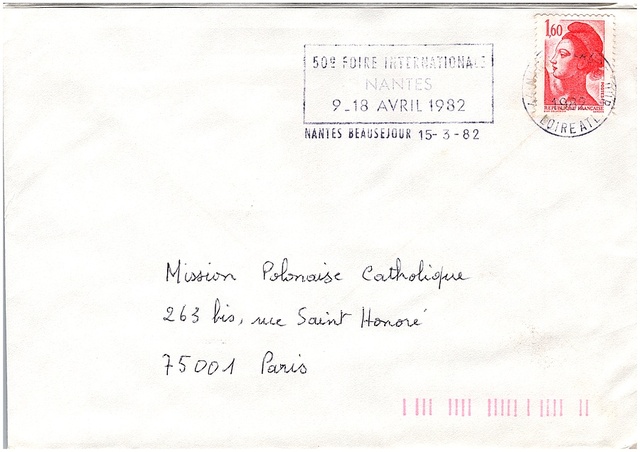 50e FOIRE INTERNATIONALE
NANTES
9_18 AVRIL 1982
NANTES BEAUSEJOUR 15-3-82
1,60
REPUBLIQUE FRANÇAISE
1982
LOIRE ATL
Mission Polonaise Catholique
263 bis, rue Saint Honoré
75001 Paris